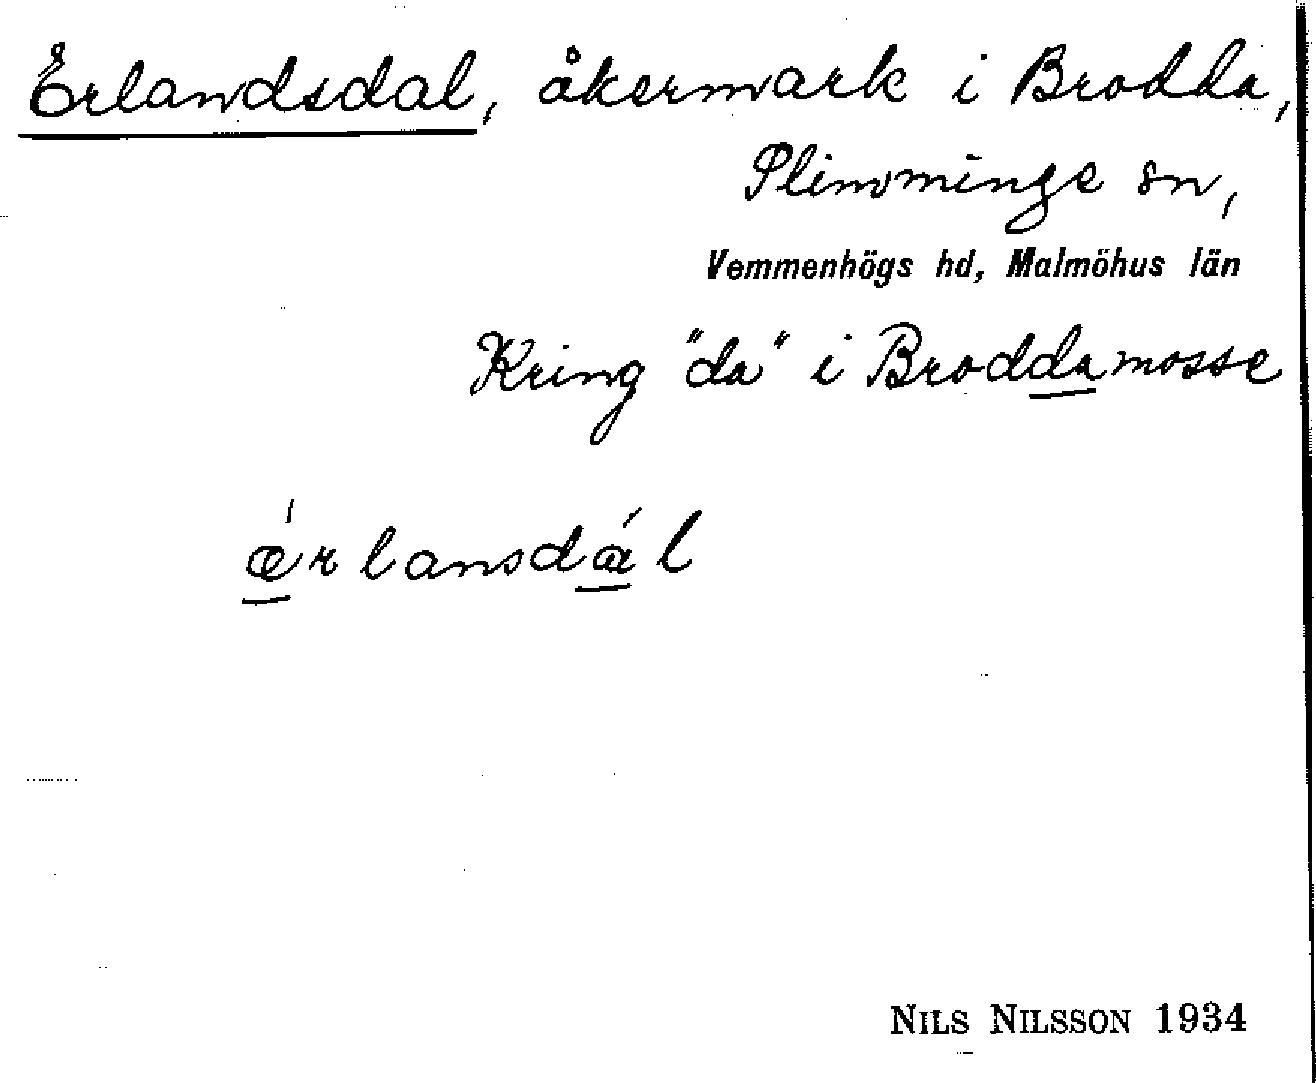 Erlandsdal, åkermark i Brodda,
Slimminge sn,
Vemmenhögs hd, Malmöhus län
Kring "da" i Broddamosse
ǽrlansdál
NILS NILSSON 1934